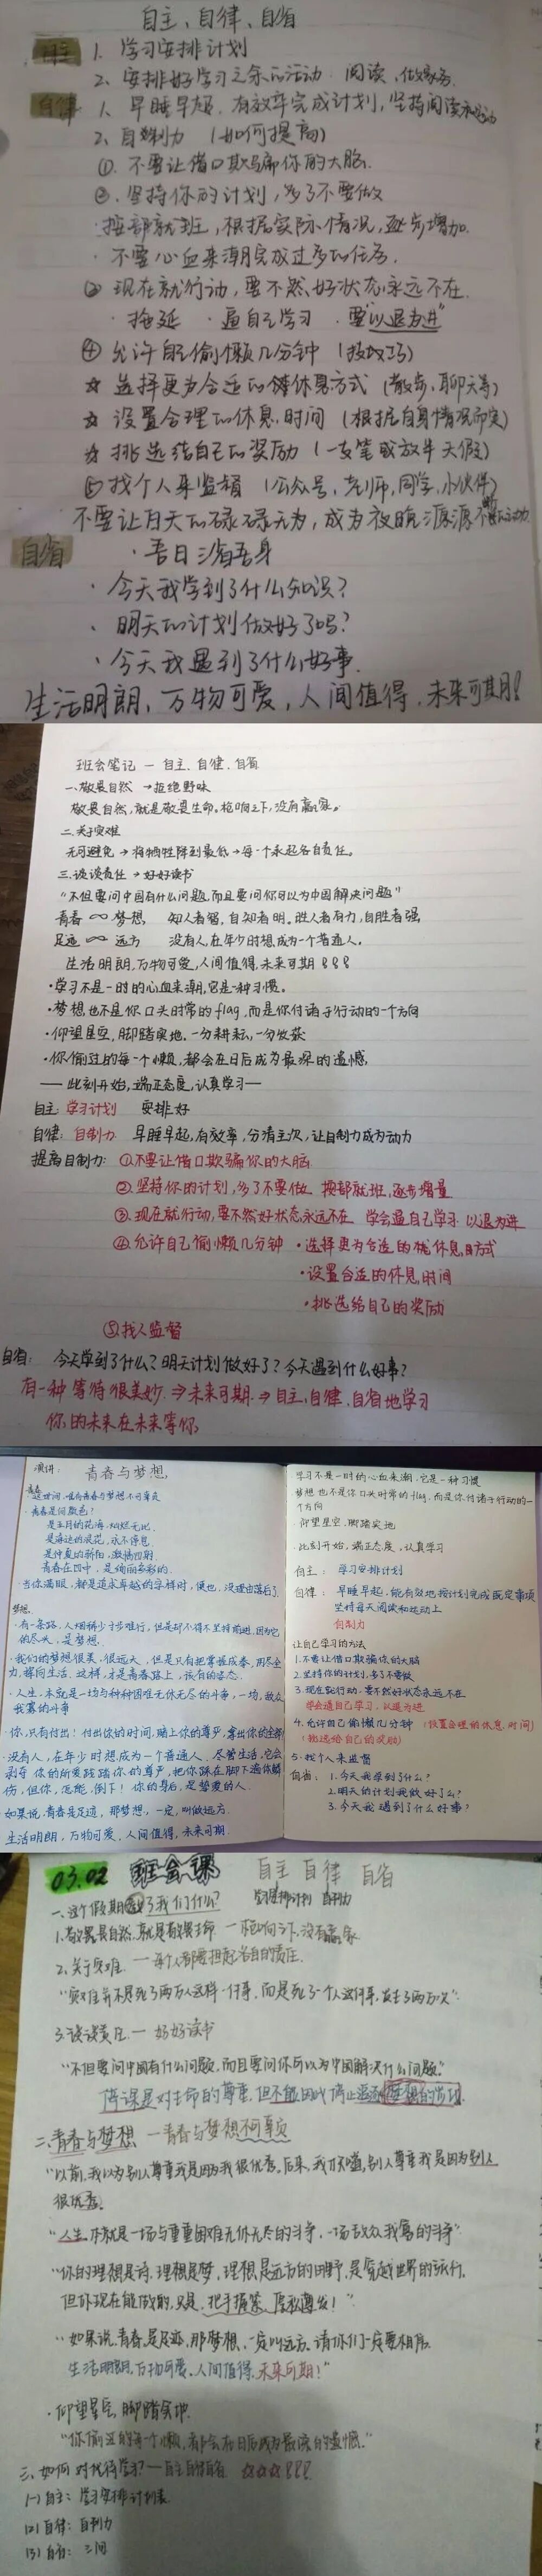 自主、自律、自省
自主 1. 学习安排计划
2. 安排好学习之余的活动 阅读、做家务.
自律 1. 早睡早起, 有效率完成计划, 坚持阅读和运动
2. 自制力 (如何提高)
①. 不要让借口欺骗你的大脑.
②. 坚持你的计划, 多了不要做
·按部就班, 根据实际情况, 逐步增加.
·不要心血来潮完成过多的任务.
③ 现在就行动, 要不然好状态永远不在.
·拖延 ·逼自己学习 ·要"以退为进"
④ 允许自己偷懒几分钟 (技巧)
☆ 选择更为合适的休息方式 (散步、聊天等)
☆ 设置合理的休息时间 (根据自身情况而定)
☆ 挑选给自己的奖励 (一支笔或放半天假)
⑤ 找个人来监督 (公众号, 老师, 同学, 小伙伴)
不要让白天的碌碌无为, 成为夜晚源源不断的动力.
自省 ·吾日三省吾身
·今天我学到了什么知识?
·明天的计划做好了吗?
·今天我遇到了什么好事.
生活明朗, 万物可爱, 人间值得, 未来可期!
班会笔记 — 自主、自律、自省
一、敬畏自然 →拒绝野味
敬畏自然, 就是敬畏生命。枪响之下, 没有赢家。
二、关于灾难
无可避免 → 将牺牲降到最低 → 每一个承起各自责任。
三、谈谈责任 → 好好读书
"不但要问中国有什么问题, 而且要问你可以为中国解决问题"
青春 ∞ 梦想 知人者智, 自知者明。胜人者有力, 自胜者强
足迹 ∞ 远方 没有人, 在年少时想成为一个普通人.
生活明朗, 万物可爱, 人间值得, 未来可期!!!
·学习不是一时的心血来潮, 它是一种习惯。
·梦想也不是你口头时常的flag, 而是你付诸于行动的一个方向
·仰望星空, 脚踏实地. 一分耕耘, 一分收获
·你偷过的每一个懒, 都会在日后成为最深的遗憾,
—— 此刻开始, 端正态度, 认真学习—
自主: 学习计划 安排好
自律: 自制力. 早睡早起, 有效率, 分清主次, 让自制力成为动力
提高自制力: ①不要让借口欺骗你的大脑
②. 坚持你的计划, 多了不要做 按部就班, 逐步增量
③. 现在就行动, 要不然好状态永远不在 学会逼自己学习 以退为进
④ 允许自己偷懒几分钟 ·选择更为合适的休息方式
·设置合适的休息时间
·挑选给自己的奖励
⑤找人监督
自省: 今天学到了什么? 明天计划做好了? 今天遇到什么好事?
有一种等待很美妙. ⇒ 未来可期 → 自主, 自律, 自省地学习
你的未来在未来等你
演讲: 青春与梦想
青春
这世间, 唯有青春与梦想不可辜负
·青春是何颜色?
是五月的花海, 灿烂无比
是海边的浪花, 永不停息
是仲夏的骄阳, 激情四射
青春在四中, 是绚丽多彩的.
·当你满眼, 都是追求卓越的字样时, 便也, 没理由落后了.
梦想.
·有一条路, 人烟稀少寸步难行, 但是却不得不坚持前进, 因为它
的尽头, 是梦想.
·我们的梦想很美, 很远大, 但是只有把掌握成拳, 用尽全
力, 挥向生活. 这样, 才是青春路上, 该有的姿态.
·人生, 本就是一场与种种困难无休无尽的斗争, 一场, 敌众
我寡的斗争
·你, 只有付出! 付出你的时间, 赌上你的尊严, 拿出你的全部
·没有人, 在年少时想成为一个普通人. 尽管生活, 它会
剥夺你的所爱践踏你的尊严, 把你踩在脚下遍体鳞
伤, 但你, 怎能, 倒下! 你的身后, 是挚爱的人.
·如果说, 青春是足迹, 那梦想, 一定, 叫做远方.
生活明朗, 万物可爱, 人间值得, 未来可期.
学习不是一时的心血来潮, 它是一种习惯
梦想也不是你口头时常的flag, 而是你付诸于行动的一
个方向
·仰望星空, 脚踏实地
·此刻开始, 端正态度, 认真学习
自主: 学习安排计划
自律: 早睡早起, 能有效地按计划完成既定事项
坚持每天阅读和运动上
自制力
让自己学习的方法
1. 不要让借口欺骗你的大脑
2. 坚持你的计划, 多了不要做
3. 现在就行动, 要不然好状态永远不在
学会逼自己学习, 以退为进
4. 允许自己偷懒几分钟 (设置合理的休息时间)
(挑选给自己的奖励)
5. 找个人来监督
自省: 1. 今天我学到了什么?
2. 明天的计划我做好了么?
3. 今天我遇到了什么好事?
03.02 班会课 自主 自律 自省
一、这个假期 了我们什么? 学习安排计划 自制力
1. 敬畏自然, 就是敬畏生命 — 枪响之下, 没有赢家
2. 关于灾难. — 每个人都要担起各自的责任.
"灾难并不是死了两万人这样一件事, 而是死了一个人这件事, 发生了两万次".
3. 谈谈责任. — 好好读书
"不但要问中国有什么问题, 而且要问你可以为中国解决什么问题."
停课是对生命的尊重, 但不能因此停止追逐梦想的步伐.
二、青春与梦想 —青春与梦想不可辜负
"以前, 我以为别人尊重我是因为我很优秀. 后来, 我才知道, 别人尊重我是因为别人
很优秀.
"人生, 本就是一场与重重困难无休无尽的斗争, 一场敌众我寡的斗争"
"你的理想是诗, 理想是梦, 理想是远方的田野, 是穿越世界的旅行.
但你现在能做的, 只是, 把手握紧, 厚积薄发!"
"如果说, 青春, 是足迹, 那梦想, 一定叫远方. 请你们一定要相信.
生活明朗, 万物可爱, 人间值得, 未来可期!"
·仰望星空, 脚踏实地.
"你偷过的每一个懒, 都会在日后成为最深的遗憾."
三、如何对待学习? — 自主自律自省 ☆☆☆!!!
(1) 自主: 学习安排计划表
(2) 自律: 自制力
(3) 自省: 三问